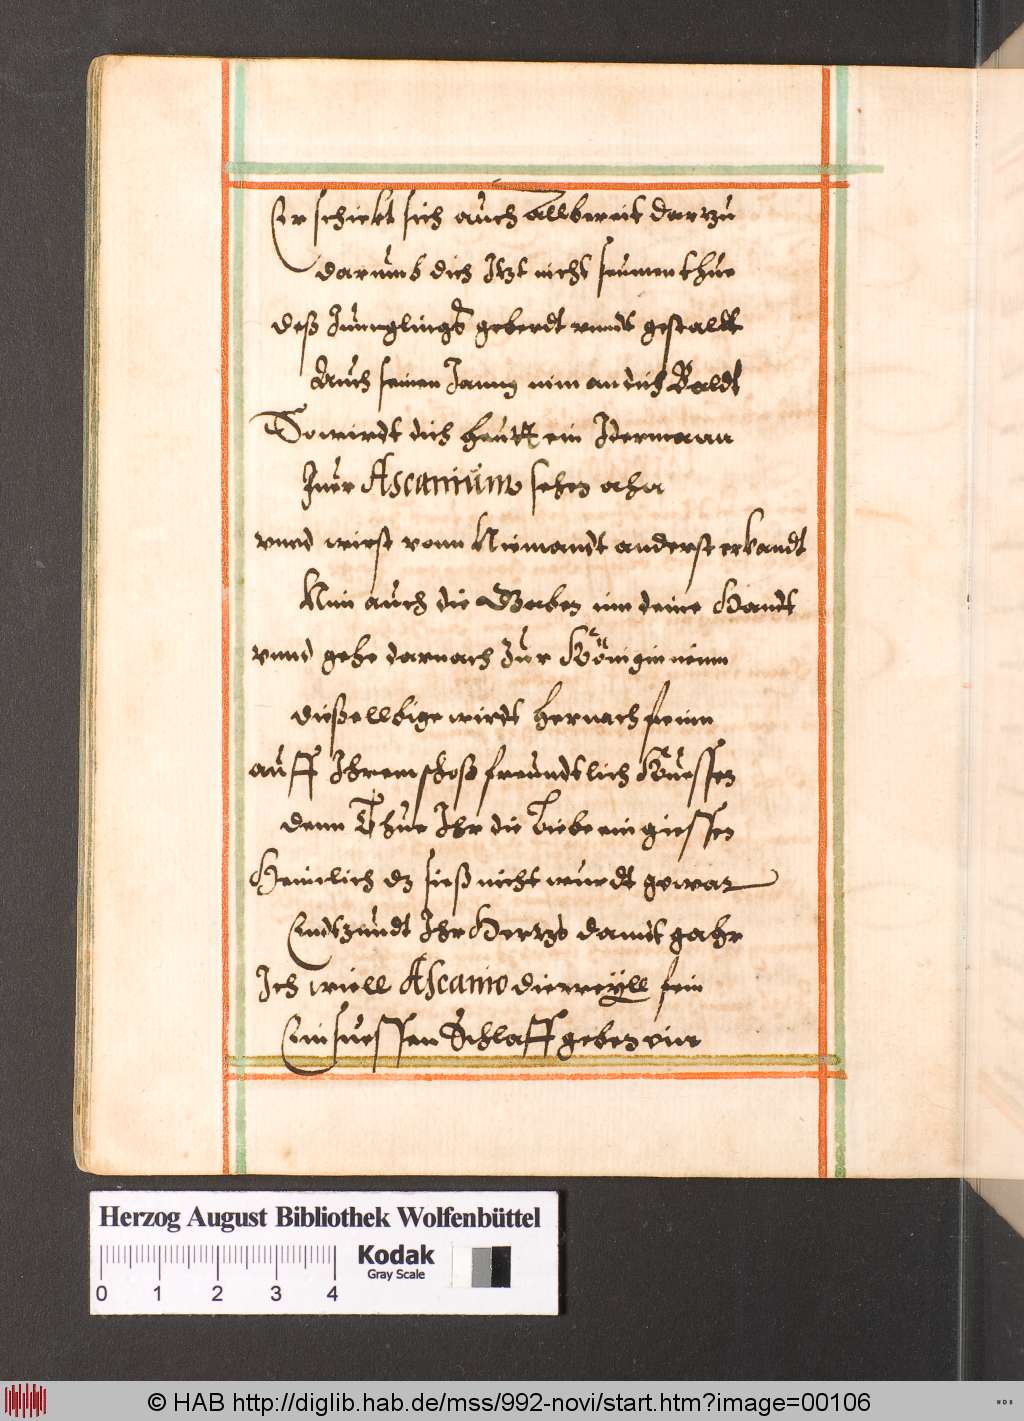 Er schickt sich auch allbereit dartzu
darumb dich Itzt nicht seumen thue
deß Junnglings geberdt vnndt gestaldt
Auch seinen Ganng nim an dich Baldt
So wirdt dich heutt ein Iderman
Inn Ascanium sehen ahn
vnnd wirst vonn Niemandt anderst erkandt
Nim auch die Gaben inn deine Handt
vnnd gehe darnach zur Königin
dießellbige wirdt hernach
auff Ihrem schoß freundtlich Küessen
denn Thue Ihr die Liebe ein giessen
Heimlich dz sieß nicht wurdt gewar
Endtzündt Ihr Hertze damit gahr
Ich will Ascanio dieweyll fein
Ein suessen Schlaff geben ein
Herzog August Bibliothek Wolfenbüttel
0 1 2 3 4
Kodak
Gray Scale
© HAB http://diglib.hab.de/mss/992-novi/start.htm?image=00106